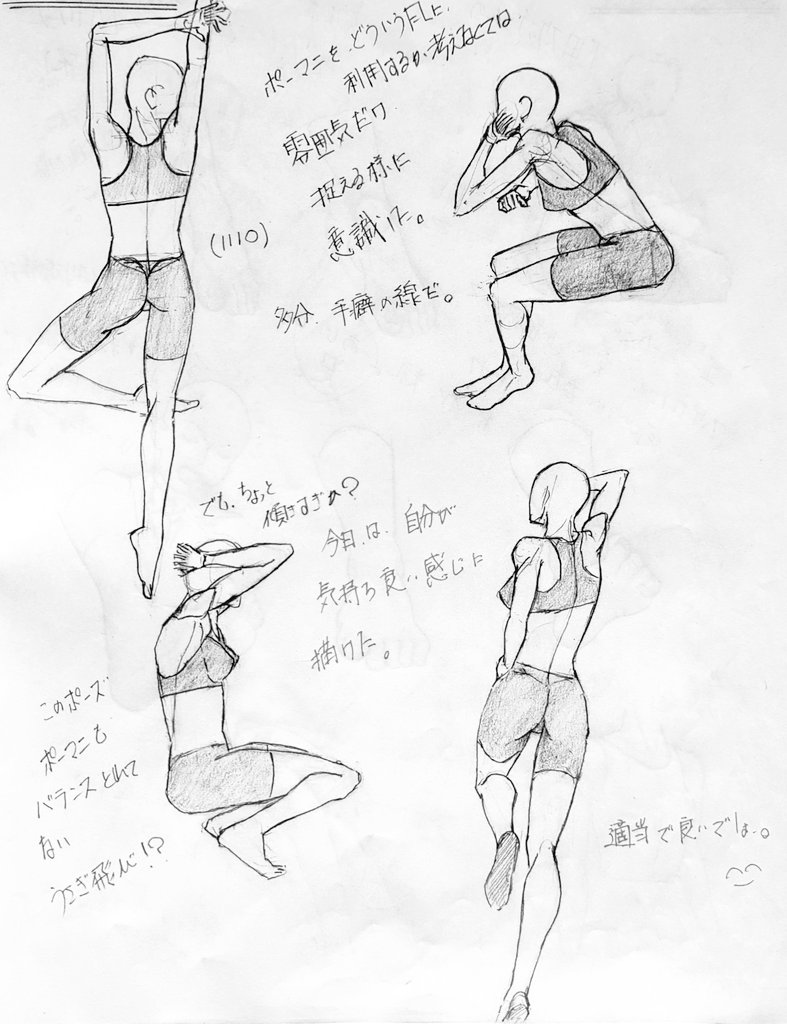 ポーマニを、どういう風に
利用するか考えなくては
雰囲気だけ
捉える様に
意識した。
(1110)
多分、手癖の線だ。
でも、ちょっと
傾きすぎか?
今日は、自分が
気持ち良い感じに
描けた。
このポーズ
ポーマニも
バランスとれて
ない
うさぎ飛び!?
適当で良いでしょ。